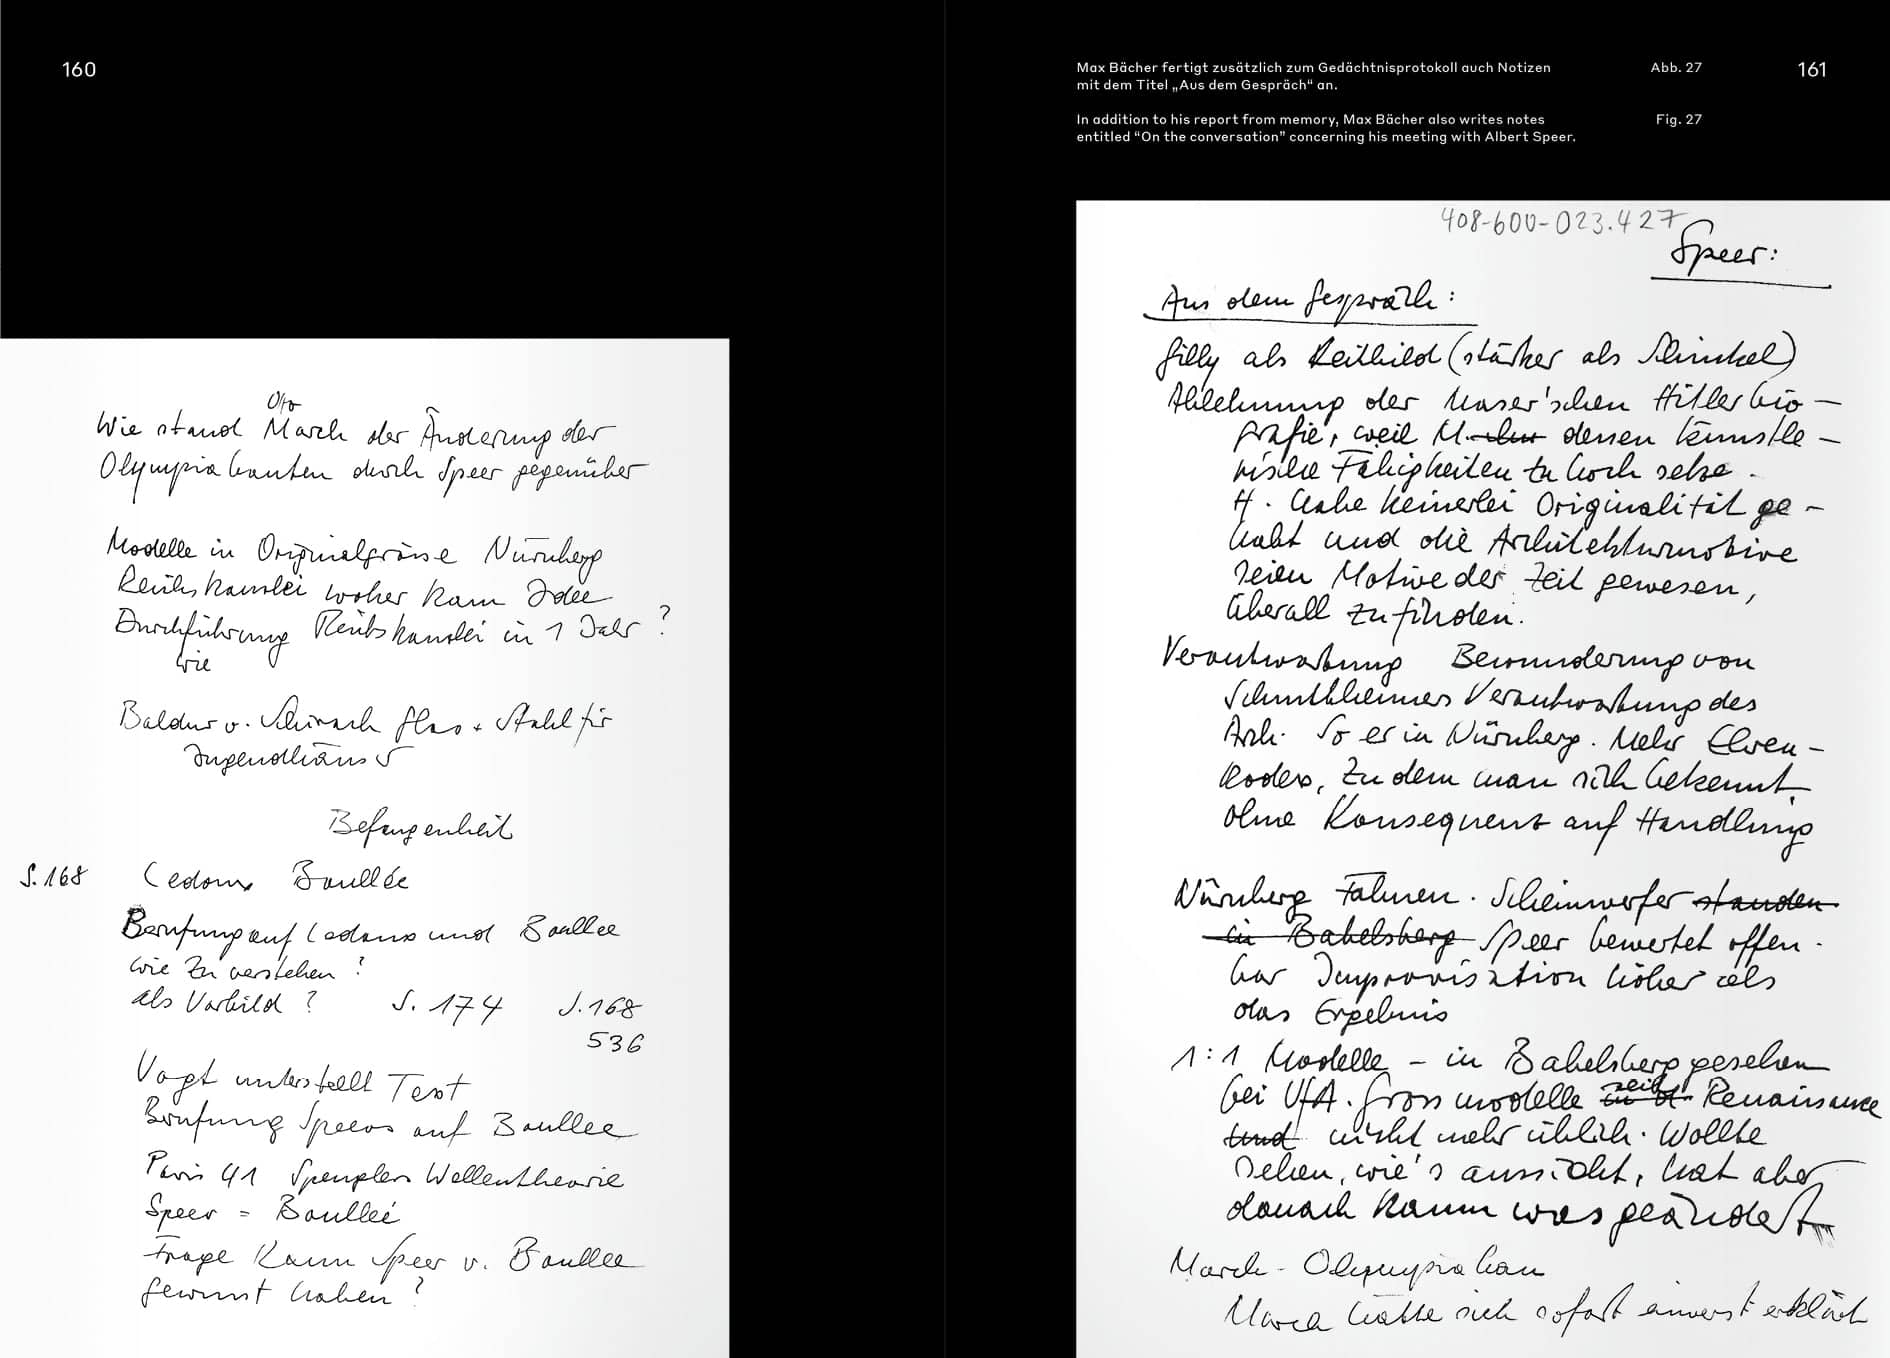 160
Otto
Wie stand March der Änderung der
Olympiabauten durch Speer gegenüber
Modelle in Originalgrösse Nürnberg
Reichskanzlei woher kam Idee
Durchführung Reichskanzlei in 1 Jahr ?
wie
Baldur v. Schirach Glas + Stahl für
Jugendhäuser
Befangenheit
S. 168 Ledoux Boullée
Berufung auf Ledoux und Boullee
wie zu verstehen ?
als Vorbild ? S. 174 S. 168
536
Vogt unterstellt Text
Berufung Speers auf Boullee
Paris 41 Spenglers Wellentheorie
Speer = Boullée
Frage Kann Speer v. Boullee
gewusst haben ?
Max Bächer fertigt zusätzlich zum Gedächtnisprotokoll auch Notizen Abb. 27
mit dem Titel „Aus dem Gespräch“ an.
In addition to his report from memory, Max Bächer also writes notes Fig. 27
entitled “On the conversation” concerning his meeting with Albert Speer.
161
408-600-023.427
Speer:
Aus dem Gespräch:
Gilly als Leitbild (stärker als Schinkel)
Ablehnung der Maser'schen Hitlerbio-
grafie, weil M. dessen künstle-
rische Fähigkeiten zu hoch setze.
H. habe keinerlei Originalität ge-
habt und die Architekturmotive
seien Motive der Zeit gewesen,
überall zu finden.
Verantwortung Bewunderung von
Schmitthenners Verantwortung des
Arch. So er in Nürnberg. Mehr Ehren-
kodex, zu dem man sich bekennt,
ohne Konsequenz auf Handlung
Nürnberg Fahnen. Scheinwerfer standen
in Babelsberg Speer bewertet offen-
bar Improvisation höher als
das Ergebnis
1:1 Modelle – in Babelsberg gesehen
bei UfA. Grossmodelle seit Renaissance
und nicht mehr üblich. Wollte
sehen, wie's aussieht, hat aber
danach kaum was geändert
March - Olympiabau
March hätte sich sofort einverst. erklärt